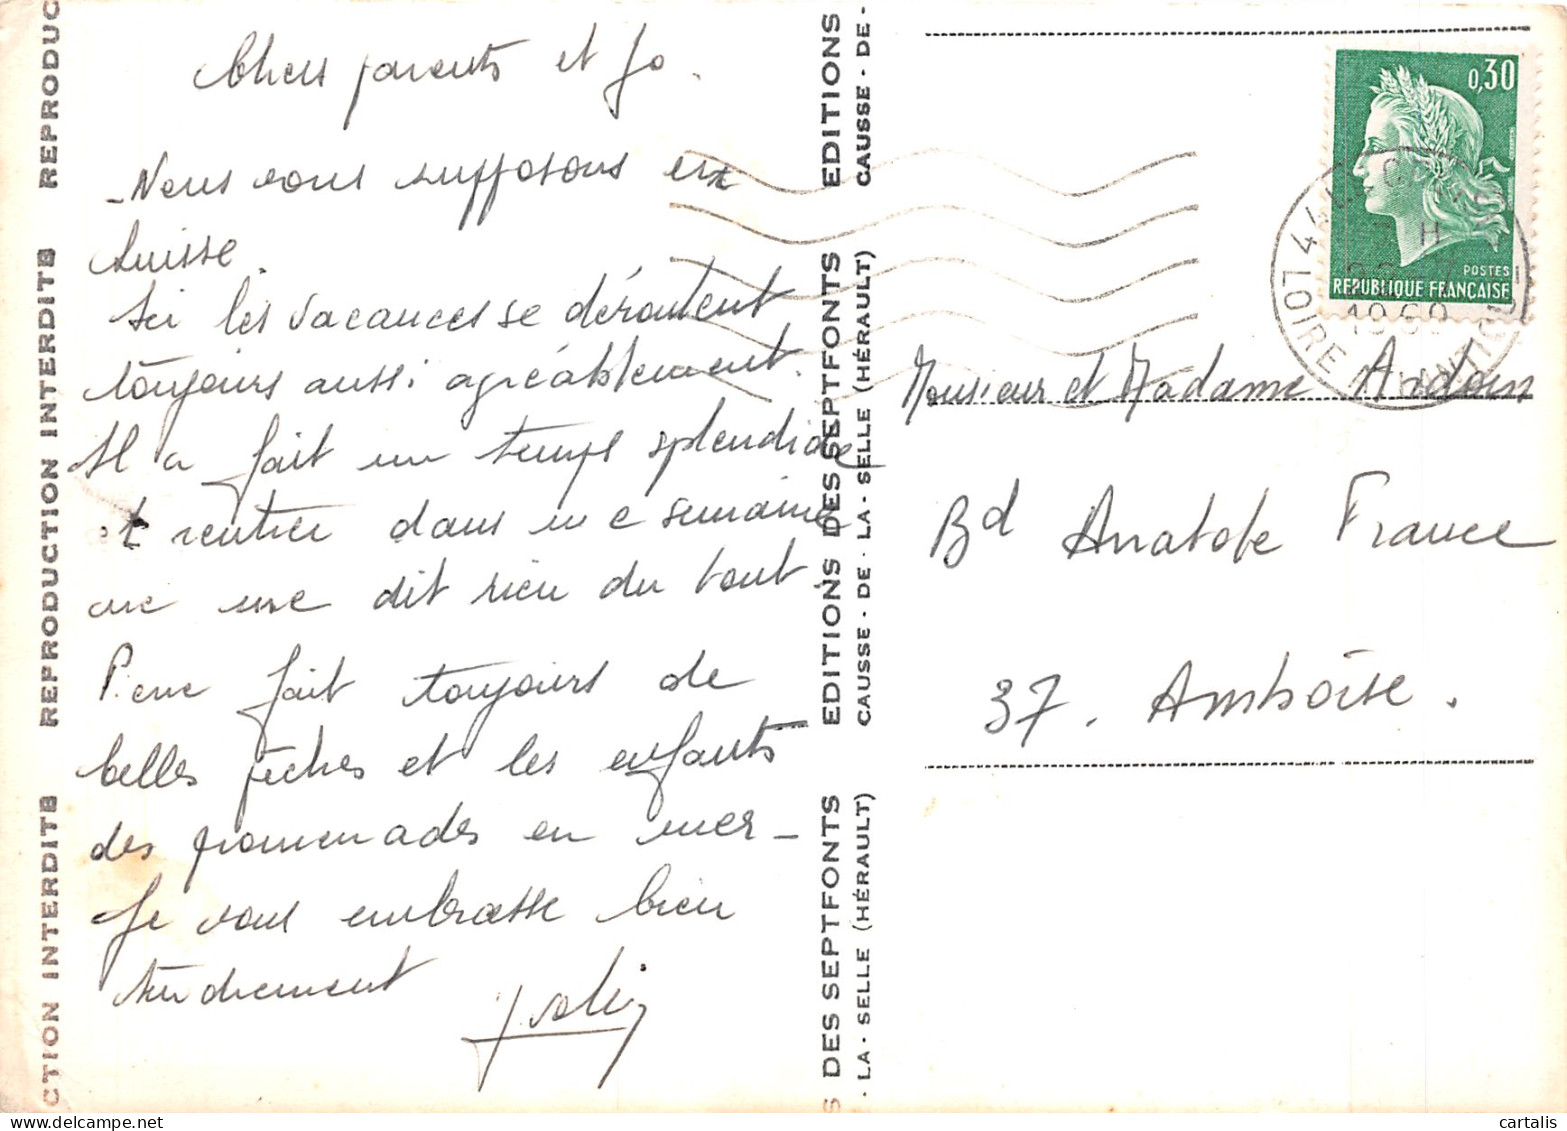 Chers parents et Jo.
Nous vous supposons en
Suisse
Ici les vacances se déroulent
toujours aussi agréablement.
Il a fait un temps splendide
et rentrer dans une semaine
ne me dit rien du tout.
Pierre fait toujours de
belles pêches et les enfants
des promenades en mer -
Je vous embrasse bien
tendrement
REPRODUCTION INTERDITE
REPRODUCTION INTERDITE
CTION INTERDITE
EDITIONS
EDITIONS DES SEPTFONTS
DES SEPTFONTS
CAUSSE - DE -
CAUSSE - DE - LA - SELLE (HÉRAULT)
LA - SELLE (HÉRAULT)
0,30
POSTES
REPUBLIQUE FRANÇAISE
44
H
1969
LOIRE ATLANTIQUE
Monsieur et Madame
Bd Anatole France
37. Amboise.
cartalis
delcampe.net